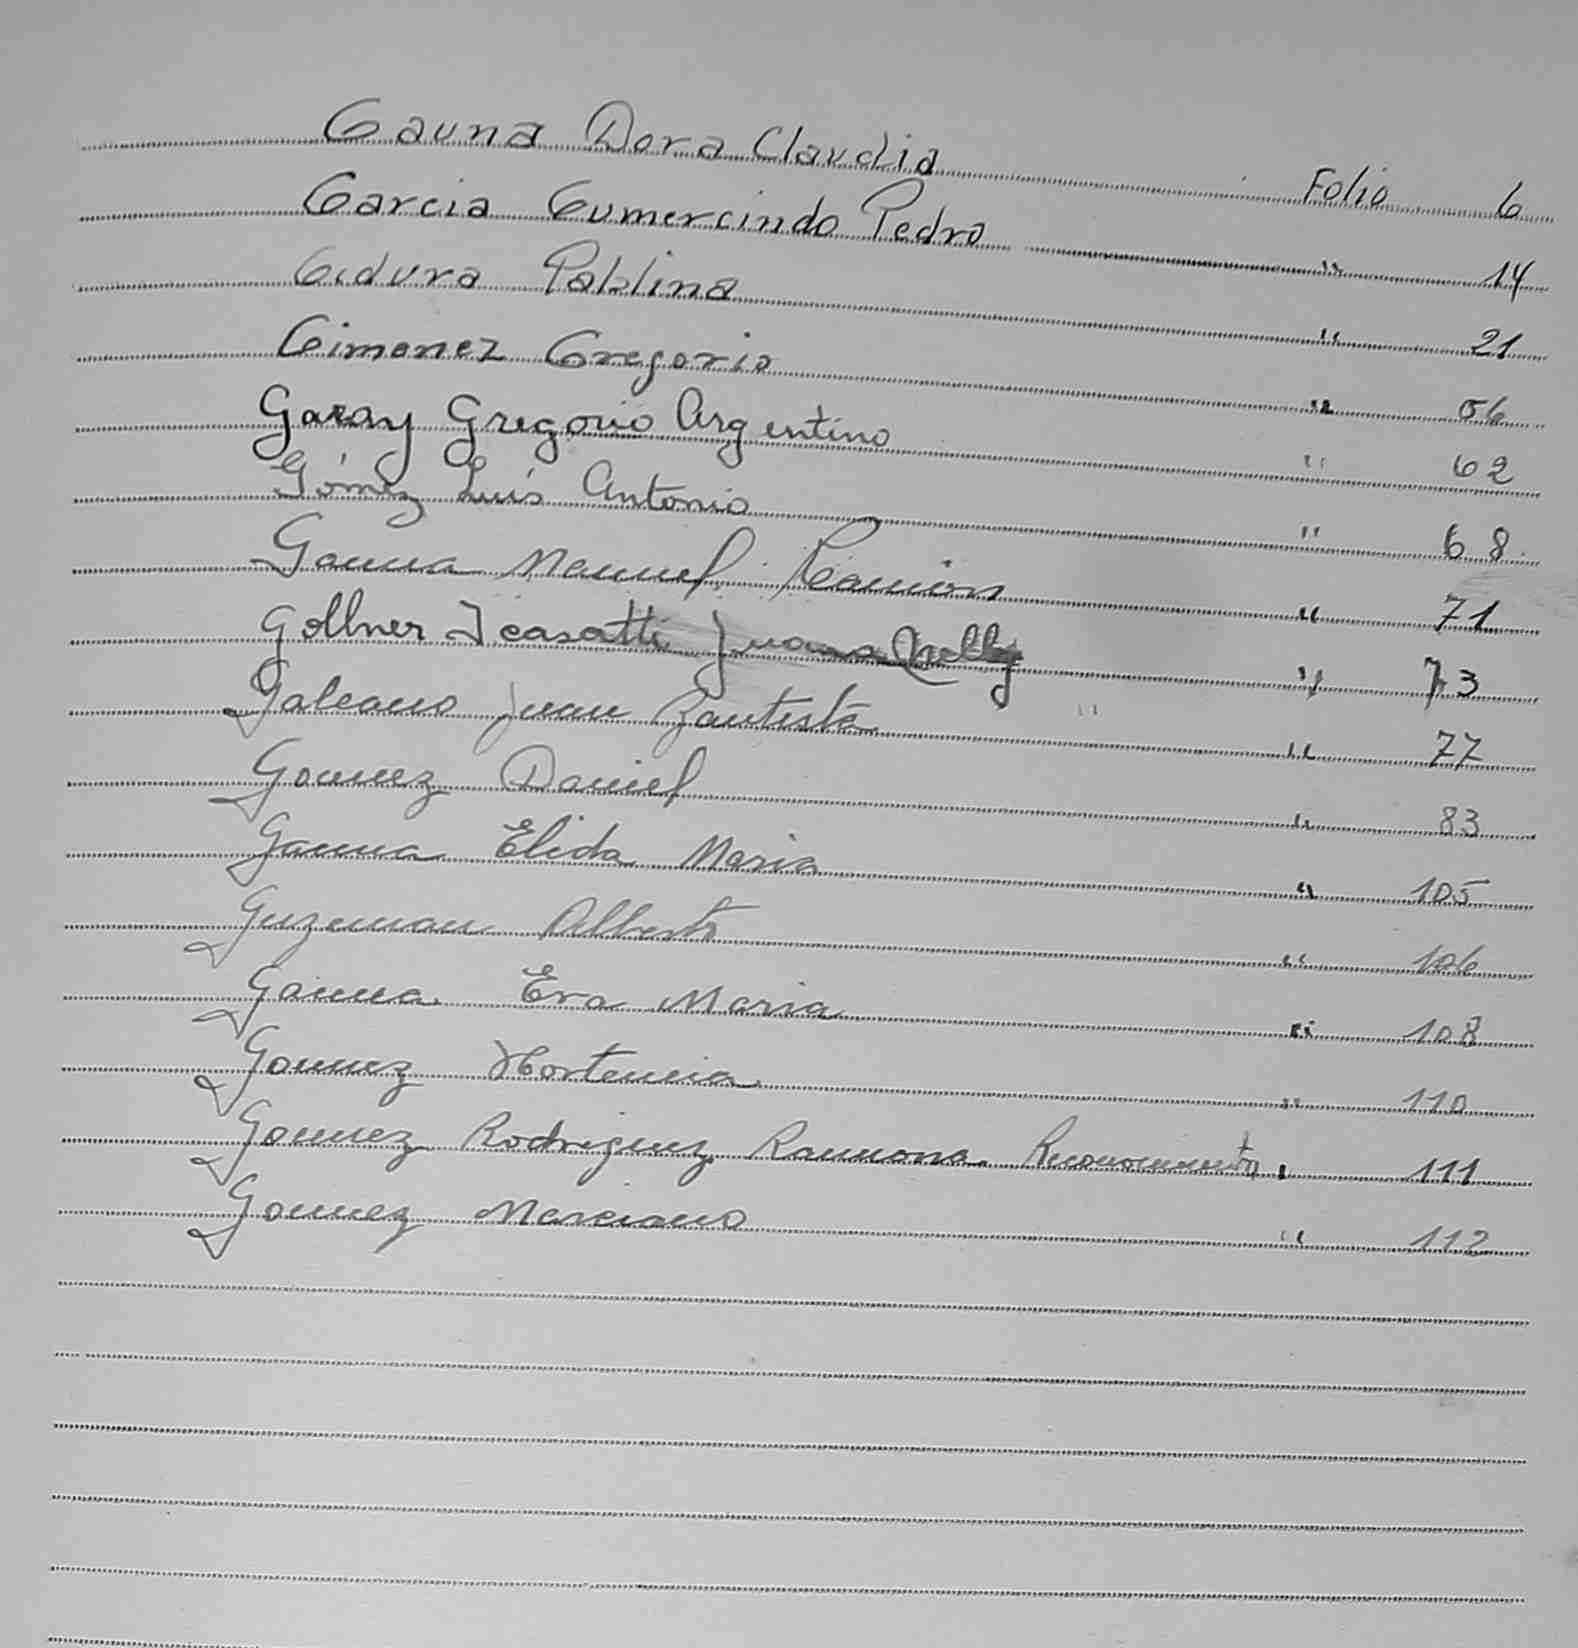 Gauna Dora Claudia Folio 6
Garcia Gumercindo Pedro " 14
Gidura Pablina " 21
Gimenez Gregorio " 56
Garay Gregorio Argentino " 62
Gómez Luis Antonio " 68
Gauna Manuel Ramón " 71
Gollner Icasatti Juana Nelly " 73
Galeano Juan Bautista " " 77
Gomez Daniel " 83
Gauna Elida Maria " 105
Guzman Alberto " 106
Gauna Eva Maria " 108
Gomez Hortencia " 110
Gomez Rodriguez Ramona Reconocimiento " 111
Gomez Marciano " 112